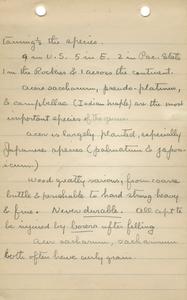 taining to the species.
9 in U.S. 5 in E. 2 in Pac. State
1 in the Rockies & 1 across the continent.
Acers saccharum, pseudo-platinus,
& campbellae (Indian maple) are the most
important species of the genus.
Acer is largely planted, especially
Japanese species (palmatum & japon-
icum)
Wood greatly various; from coarse
brittle & perishable to hard strong heavy
& fine. Never durable. All apt to
be injured by borers after felling
Acer saccharum, saccharinum
both often have curly grain.